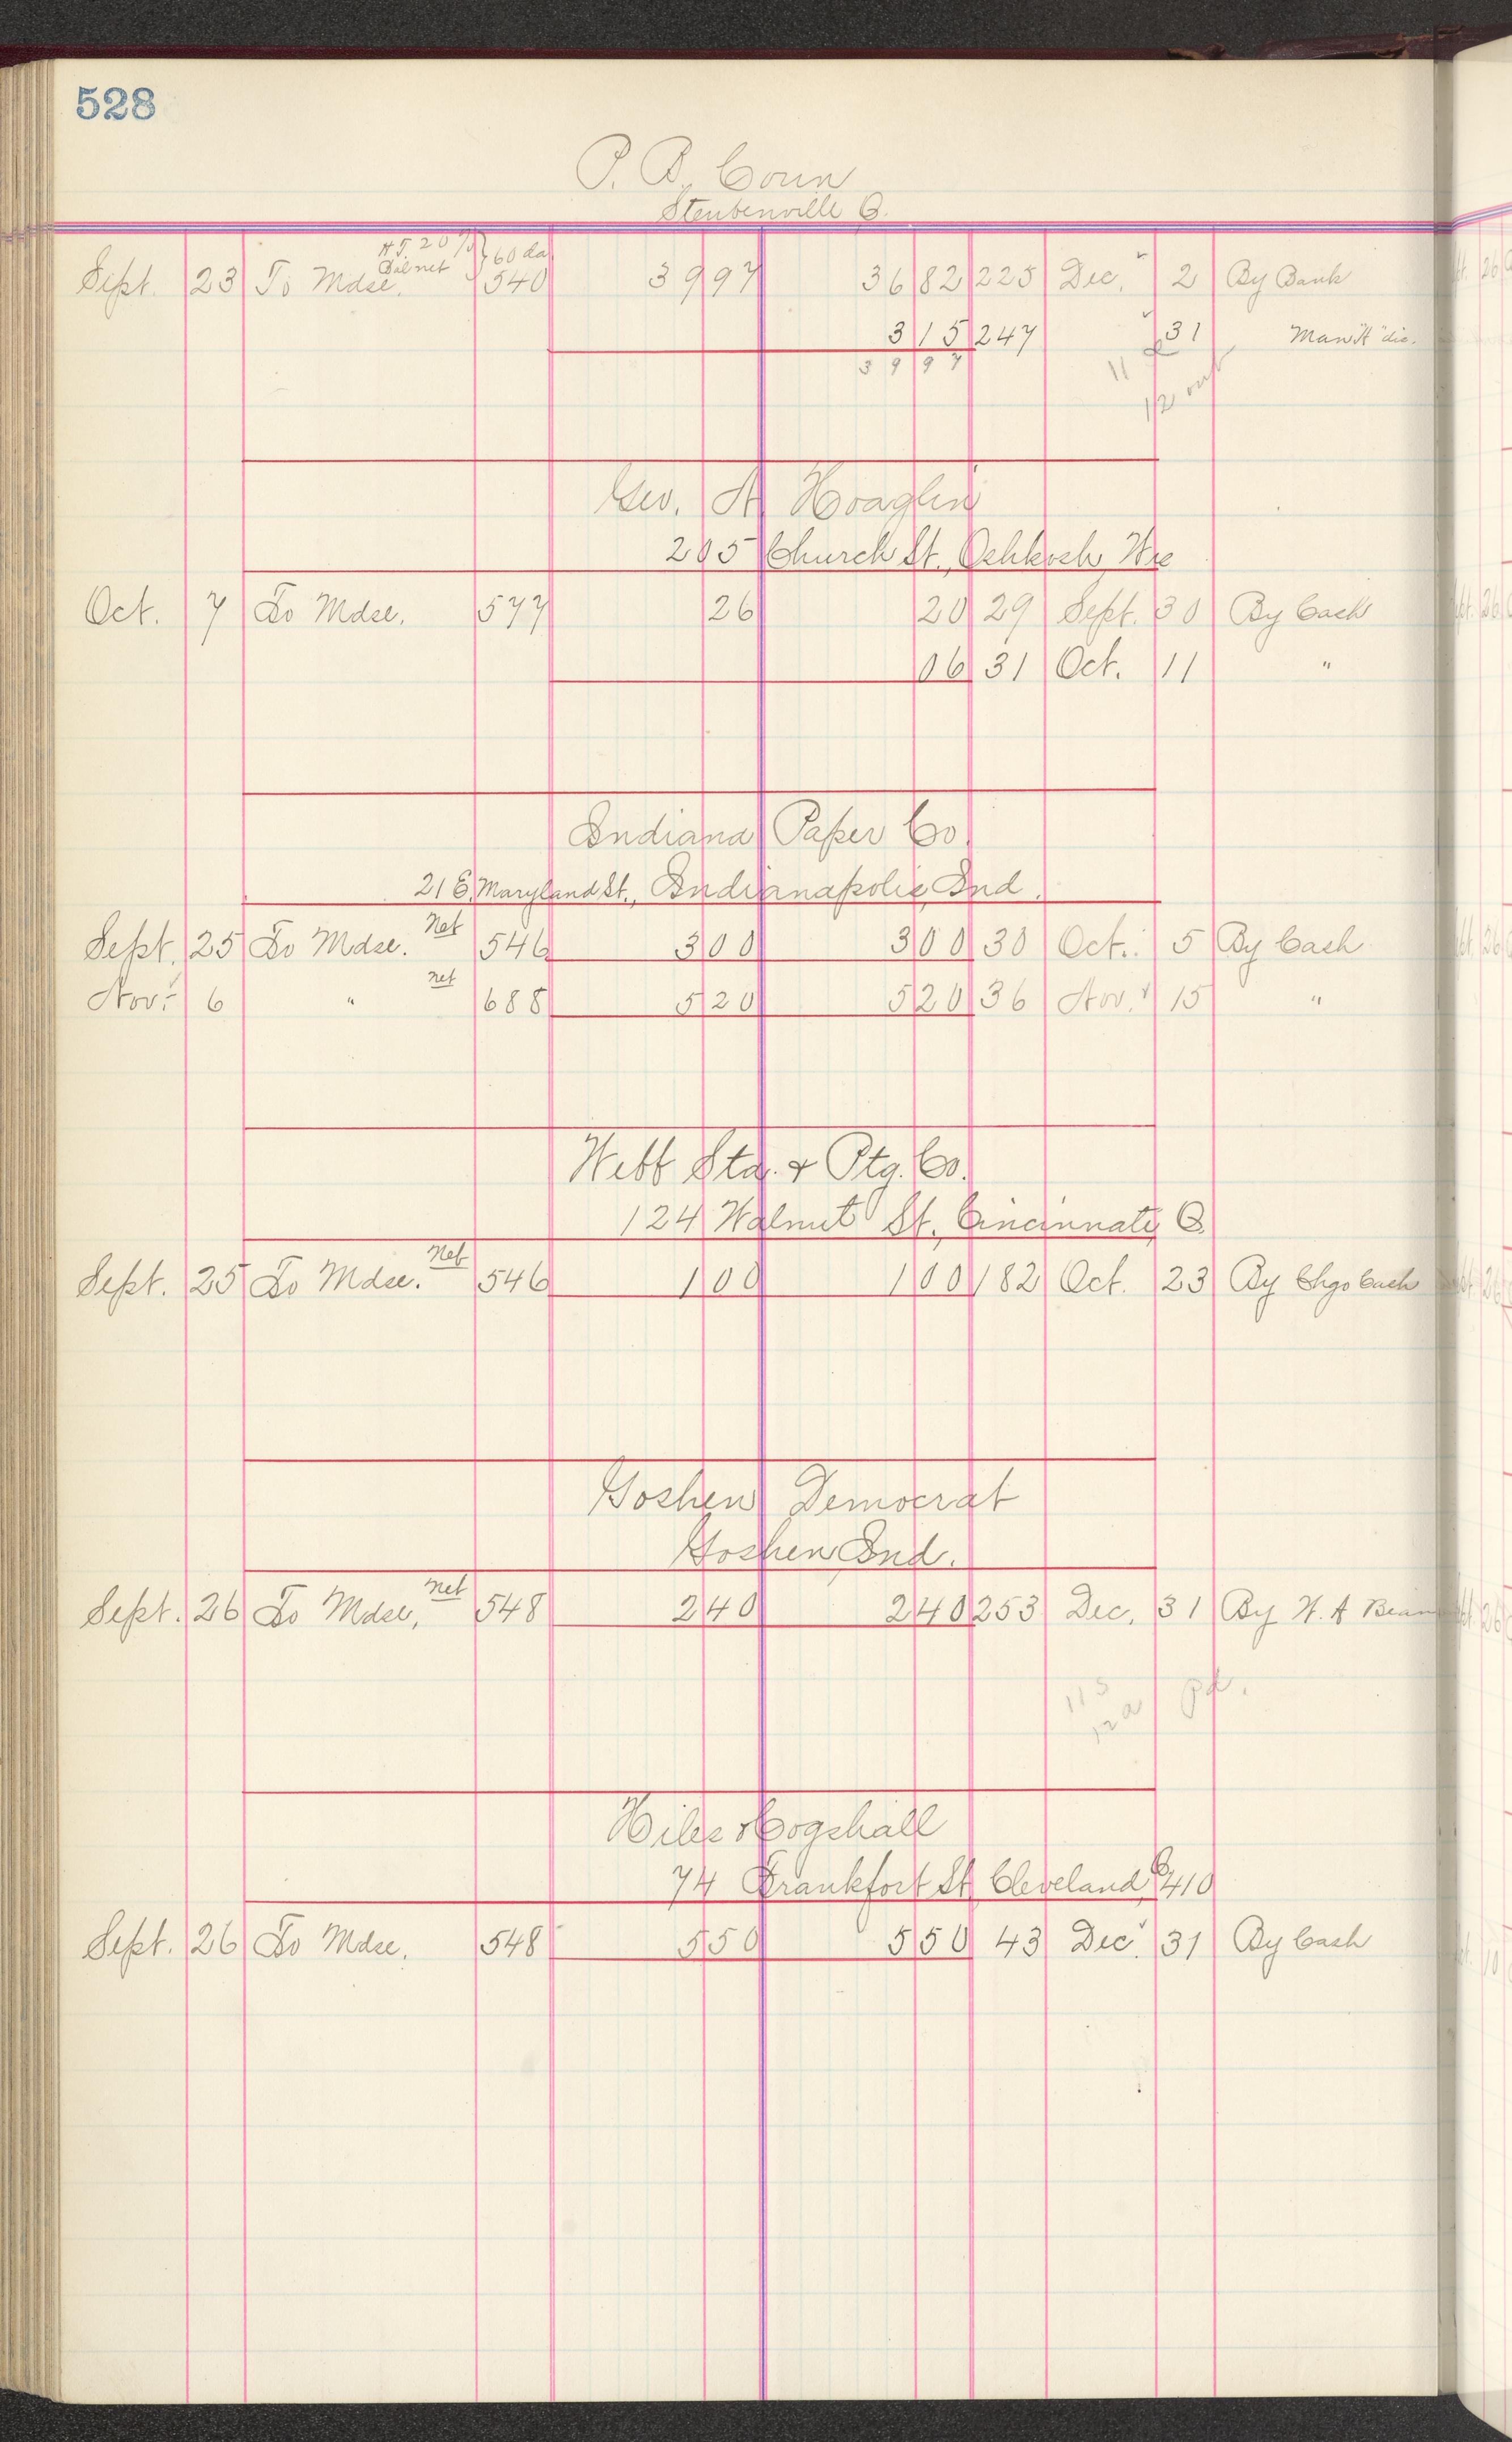 528
P. B. Conn
Steubenville O.
H.T. 20% 60 da
Bal net
Sept. 23 To Mdse. 540 39 97 36 82 225 Dec. 2 By Bank
3 15 247 31 Man "H" dis.
39 97
11
12 out
Geo. A. Hoaglin
205 Church St., Oshkosh, Wis
Oct. 7 To Mdse. 577 26 20 29 Sept. 30 By Cash
06 31 Oct. 11 "
Indiana Paper Co.
21 E. Maryland St., Indianapolis, Ind.
Sept. 25 To Mdse. Net 546 3 00 3 00 30 Oct. 5 By Cash
Nov. 6 " net 688 5 20 5 20 36 Nov. 15 "
Webb Sta. & Ptg. Co.
124 Walnut St., Cincinnati, O.
Sept. 25 To Mdse. Net 546 1 00 1 00 182 Oct. 23 By Chgo Cash
Goshen Democrat
Goshen Ind.
Sept. 26 To Mdse, net 548 2 40 2 40 253 Dec. 31 By H. A Beam
pd.
Hiles & Cogshall
74 Frankfort St Cleveland, O 410
Sept. 26 To Mdse. 548 5 50 5 50 43 Dec. 31 By Cash